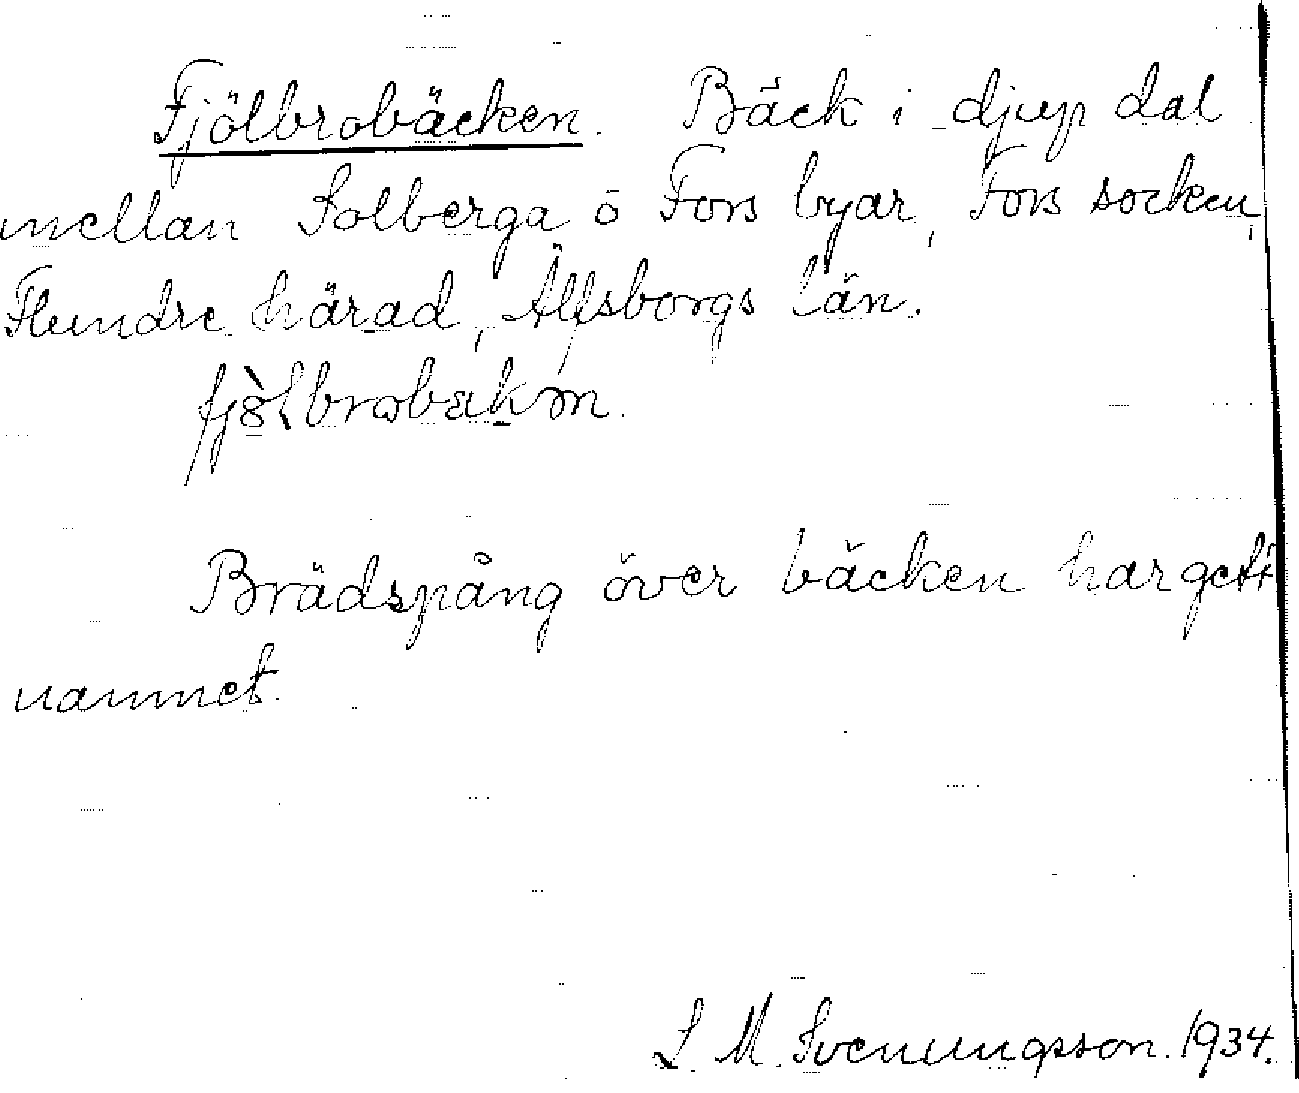 Fjölbrobäcken. Bäck i djup dal
mellan Solberga ö Fors byar, Fors socken,
Flundre härad, Älfsborgs län.
Brädspång över bäcken har gett
namnet.
S. M. Svenungsson. 1934.